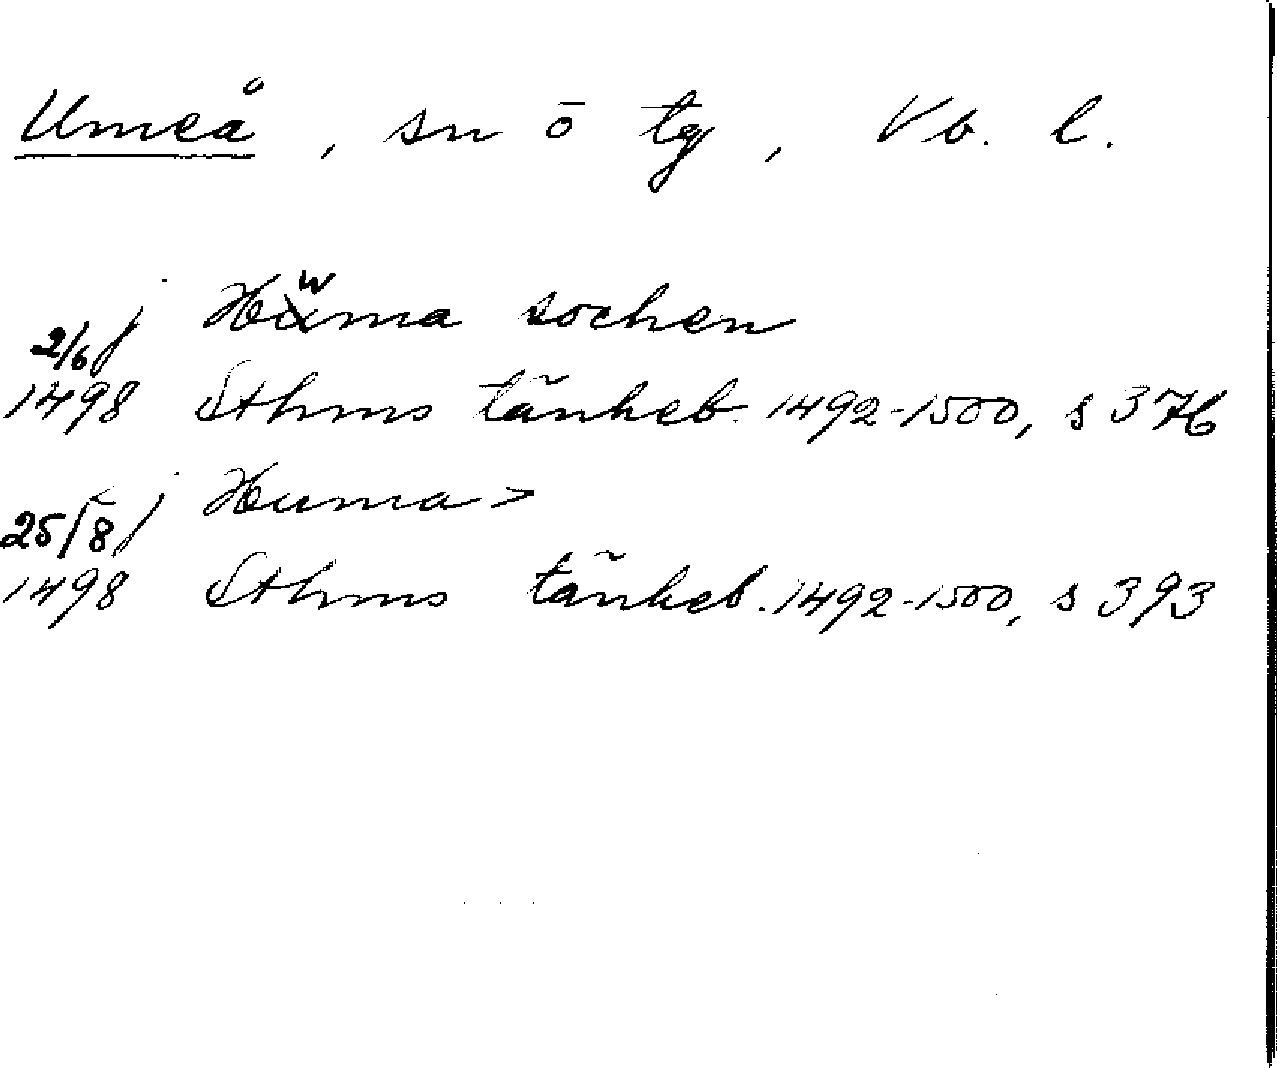 Umeå, sn ō tg, Vb. l.
j Hwma sochen
2/6
1498 Sthms tänkeb. 1492-1500, s 376
j Huma>
25/8
1498 Sthms tänkeb. 1492-1500, s 393